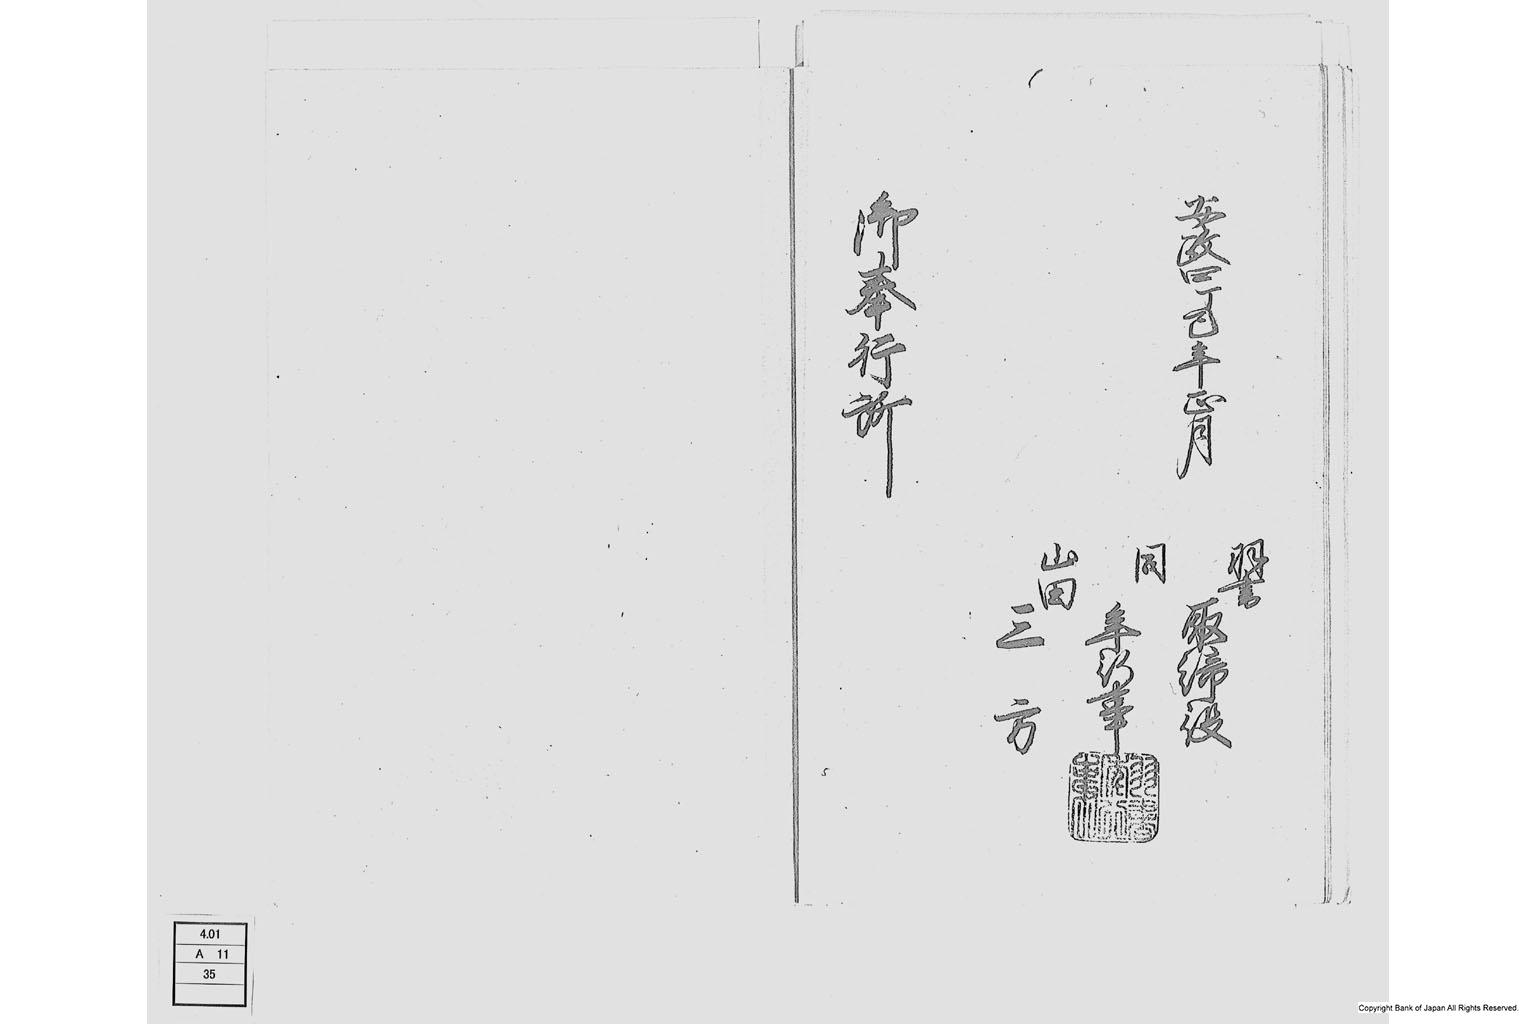 安政四丁巳年正月
羽書
取締役
同
年行事
山田
三方
御奉行所
4.01
A 11
35
Copyright Bank of Japan All Rights Reserved.